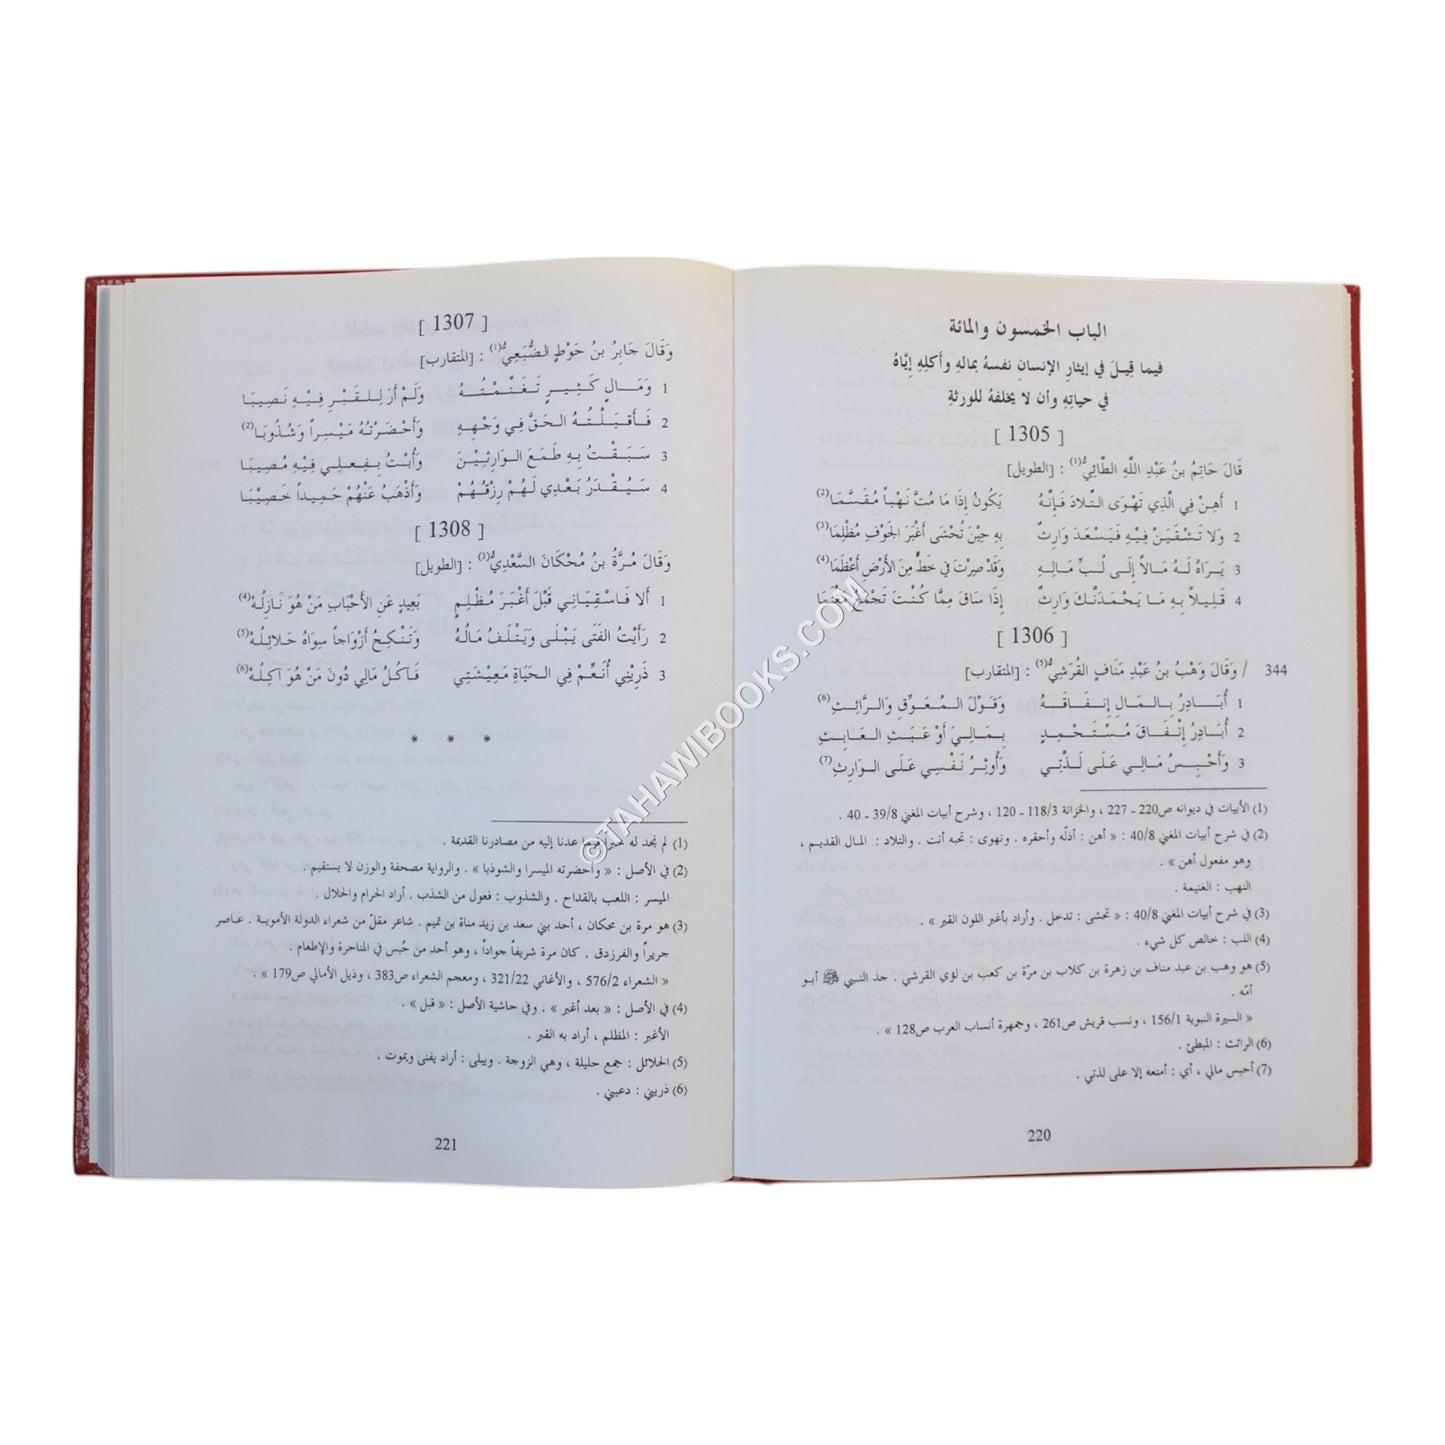 الباب الخمسون والمائة
فيما قِيلَ في إيثارِ الإنسانِ نفسهُ بمالهِ وأكلِهِ إيَّاهُ
في حياتِهِ وأن لا يخلفهُ للورثةِ
[ 1305 ]
قَالَ حَاتِمُ بنُ عَبْدِ اللهِ الطَّائِيُّ(1) : [الطويل]
1 أَهِنْ فِي الَّذِي تَهْوَى التِّلادَ فَإِنَّهُ يَكُونُ إِذَا مَا مُتَّ نَهْباً مُقَسَّمَا(2)
2 وَلا تَشْقَيَنْ فِيْهِ فَيَسْعَدَ وَارِثٌ بِهِ حِيْنَ تُحْشَى أَغْبَرَ الجَوْفِ مُظْلِمَا(3)
3 يَرَاهُ لَهُ مَالاً إِلَى لُبِّ مَالِهِ وَقَدْ صِرْتَ فِي خَطٍّ مِنَ الأَرْضِ أَعْظَمَا(4)
4 قَلِيلاً بِهِ مَا يَحْمَدَنَّكَ وَارِثٌ إِذَا سَاقَ مِمَّا كُنْتَ تَجْمَعُ مَغْنَمَا
[ 1306 ]
344 / وَقَالَ وَهْبُ بنُ عَبْدِ مَنَافٍ القُرَشِيُّ(5) : [المتقارب]
1 أُبَادِرُ بِالمَالِ إِنفَاقَهُ وَقَوْلَ المُعَوِّقِ وَالرَّائِثِ(6)
2 أُبَادِرُ إِنْفَاقَ مُسْتَحْمِدٍ بِمَالِيَ أَوْ عَبَثَ العَابِثِ
3 وَأَحْبِسُ مَالِي عَلَى لَذَّتِي وَأُوثِرُ نَفْسِي عَلَى الوَارِثِ(7)
(1) الأبيات في ديوانه ص220 ـ 227 ، والخزانة 118/3 ـ 120 ، وشرح أبيات المغني 39/8 ـ 40 .
(2) في شرح أبيات المغني 40/8 : « أهن : أذلّه وأحقره . وتهوى : تحبه أنت . والتلاد : المال القديم ،
وهو مفعول أهن » .
النهب : الغنيمة .
(3) في شرح أبيات المغني 40/8 : « تحشى : تدخل . وأراد بأغبر اللون القبر » .
(4) اللب : خالص كل شيء .
(5) هو وهب بن عبد مناف بن زهرة بن كلاب بن مرّة بن كعب بن لؤي القرشي . جد النبي ﷺ أبو
أمّه .
« السيرة النبوية 156/1 ، ونسب قريش ص261 ، وجمهرة أنساب العرب ص128 » .
(6) الرائث : المبطئ .
(7) أحبس مالي ، أي : أمنعه إلا على لذتي .
220
[ 1307 ]
وَقَالَ جَابِرُ بنُ حَوْطٍ الضُّبَعِيُّ(1) : [المتقارب]
1 وَمَالٍ كَثِيرٍ تَغَنَّمْتُهُ وَلَمْ أَرَ لِلقَبْرِ فِيْهِ نَصِيبَا
2 فَأَقبَلْتُهُ الحَقَّ فِي وَجْهِهِ وَأَحْضَرْتُهُ مَيْسِراً وَشُذُوبَا(2)
3 سَبَقْتُ بِهِ طَمَعَ الوَارِثِيْنَ وَأُبْتُ بِفِعلِي فِيْهِ مُصِيبَا
4 سَيُقْدَرُ بَعْدِي لَهُمْ رِزْقُهُمْ وَأَذْهَبُ عَنْهُمْ حَمِيداً خَصِيْبَا
[ 1308 ]
وَقَالَ مُرَّةُ بنُ مُحْكَانَ السَّعْدِيُّ(3) : [الطويل]
1 ألا فَاسْقِيَانِي قَبْلَ أَغْبَرَ مُظْلِمٍ بَعِيدٍ عَنِ الأَحْبَابِ مَنْ هُوَ نَازِلُهْ(4)
2 رَأَيْتُ الفَتَى يَبْلَى وَيَتْلَفُ مَالُهُ وَتَنْكِحُ أَزْوَاجاً سِوَاهُ حَلائِلُهْ(5)
3 ذَرِيْنِي أُنَعِّمْ فِي الحَيَاةِ مَعِيْشَتِي فَآكُلُ مَالِي دُونَ مَنْ هُوَ آكِلُهْ(6)
* * *
(1) لم نجد له خبراً فيما عدنا إليه من مصادرنا القديمة .
(2) في الأصل : « وأحضرته الميسرا والشوذبا » . والرواية مصحفة والوزن لا يستقيم .
الميسر : اللعب بالقداح . والشذوب : فعول من الشذب . أراد الحرام والحلال .
(3) هو مرة بن محكان ، أحد بني سعد بن زيد مناة بن تميم . شاعر مقلّ من شعراء الدولة الأموية . عاصر
جريراً والفرزدق . كان مرة شريفاً جواداً ، وهو أحد من حُبس في المناحرة والإطعام .
« الشعراء 576/2 ، والأغاني 321/22 ، ومعجم الشعراء ص383 ، وذيل الأمالي ص179 » .
(4) في الأصل : « بعد أغبر » . وفي حاشية الأصل : « قبل » .
الأغبر : المظلم ، أراد به القبر .
(5) الحلائل : جمع حليلة ، وهي الزوجة . ويبلى : أراد يفنى ويموت .
(6) ذريني : دعيني .
221
©TAHAWIBOOKS.COM